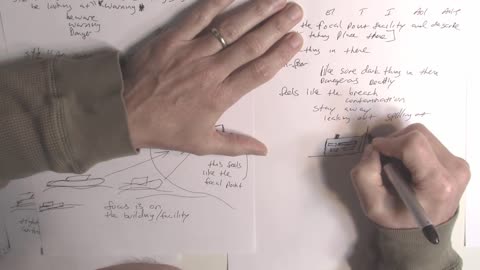 be looking at "Warning"
beware
Warning
Danger
this feels
like the
focal point
focus is on
the building/facility
ET T I
the focal point facility and describe
taking place there]
thing in there
like some dark thing in there
Dangerous Deadly
feels like the breach
contamination
stay away
leaking out spilling out